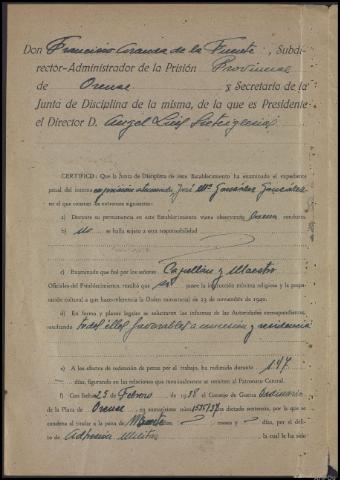 Don Francisco Aranda de la Fuente, Subdi-
rector-Administrador de la Prisión Provincial
de Orense y Secretario de la
Junta de Disciplina de la misma, de la que es Presidente
el Director D. Angel Luis
CERTIFICO: Que la Junta de Disciplina de este Establecimiento ha examinado el expediente
penal del interno en prisión atenuada, José Mª González González
en el que constan los extremos siguientes:
a) Durante su permanencia en este Establecimiento viene observando buena conducta.
b) no se halla sujeto a otra responsabilidad
c) Examinado que fué por los señores Capellán y Maestro
Oficiales del Establecimiento, resultó que posee la instrucción mínima religiosa y la prepa-
ración cultural a que hace referencia la Orden ministerial de 23 de noviembre de 1940.
d) En forma y plazos legales se solicitaron los informes de las Autoridades correspondientes,
resultando todos ellos favorables a concesión y residencia
e) A los efectos de redención de penas por el trabajo, ha redimido durante 147
días, figurando en las relaciones que mensualmente se remiten al Patronato Central.
f) Con fecha 25 de Febrero de 1938 el Consejo de Guerra Ordinario
de la Plaza de Orense en sumarísimo núm. 1535/37 ha dictado sentencia, por la que se
condena al titular a la pena de Muerte años, meses y días, por el deli-
to de Adhesión Militar la cual le ha sido